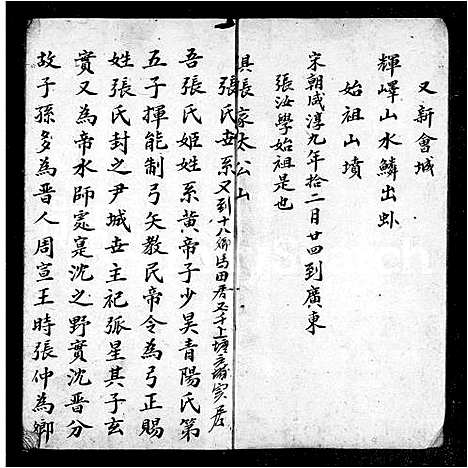 又新會城
輝嶧山水鱗出虬
始祖山墳
宋朝咸淳九年拾二月廿四到廣東
張汝學始祖是也
具張家太公山
張氏世系又到十八鄉馬田居又
吾張氏姬姓系黃帝子少昊青陽氏第
五子揮能制弓矢教民帝令為弓正賜
姓張氏封之尹城世主祀弧星其子玄
實又為帝水師寔寔沈之野實沈晋分
故子孫多為晋人周宣王時張仲為鄉